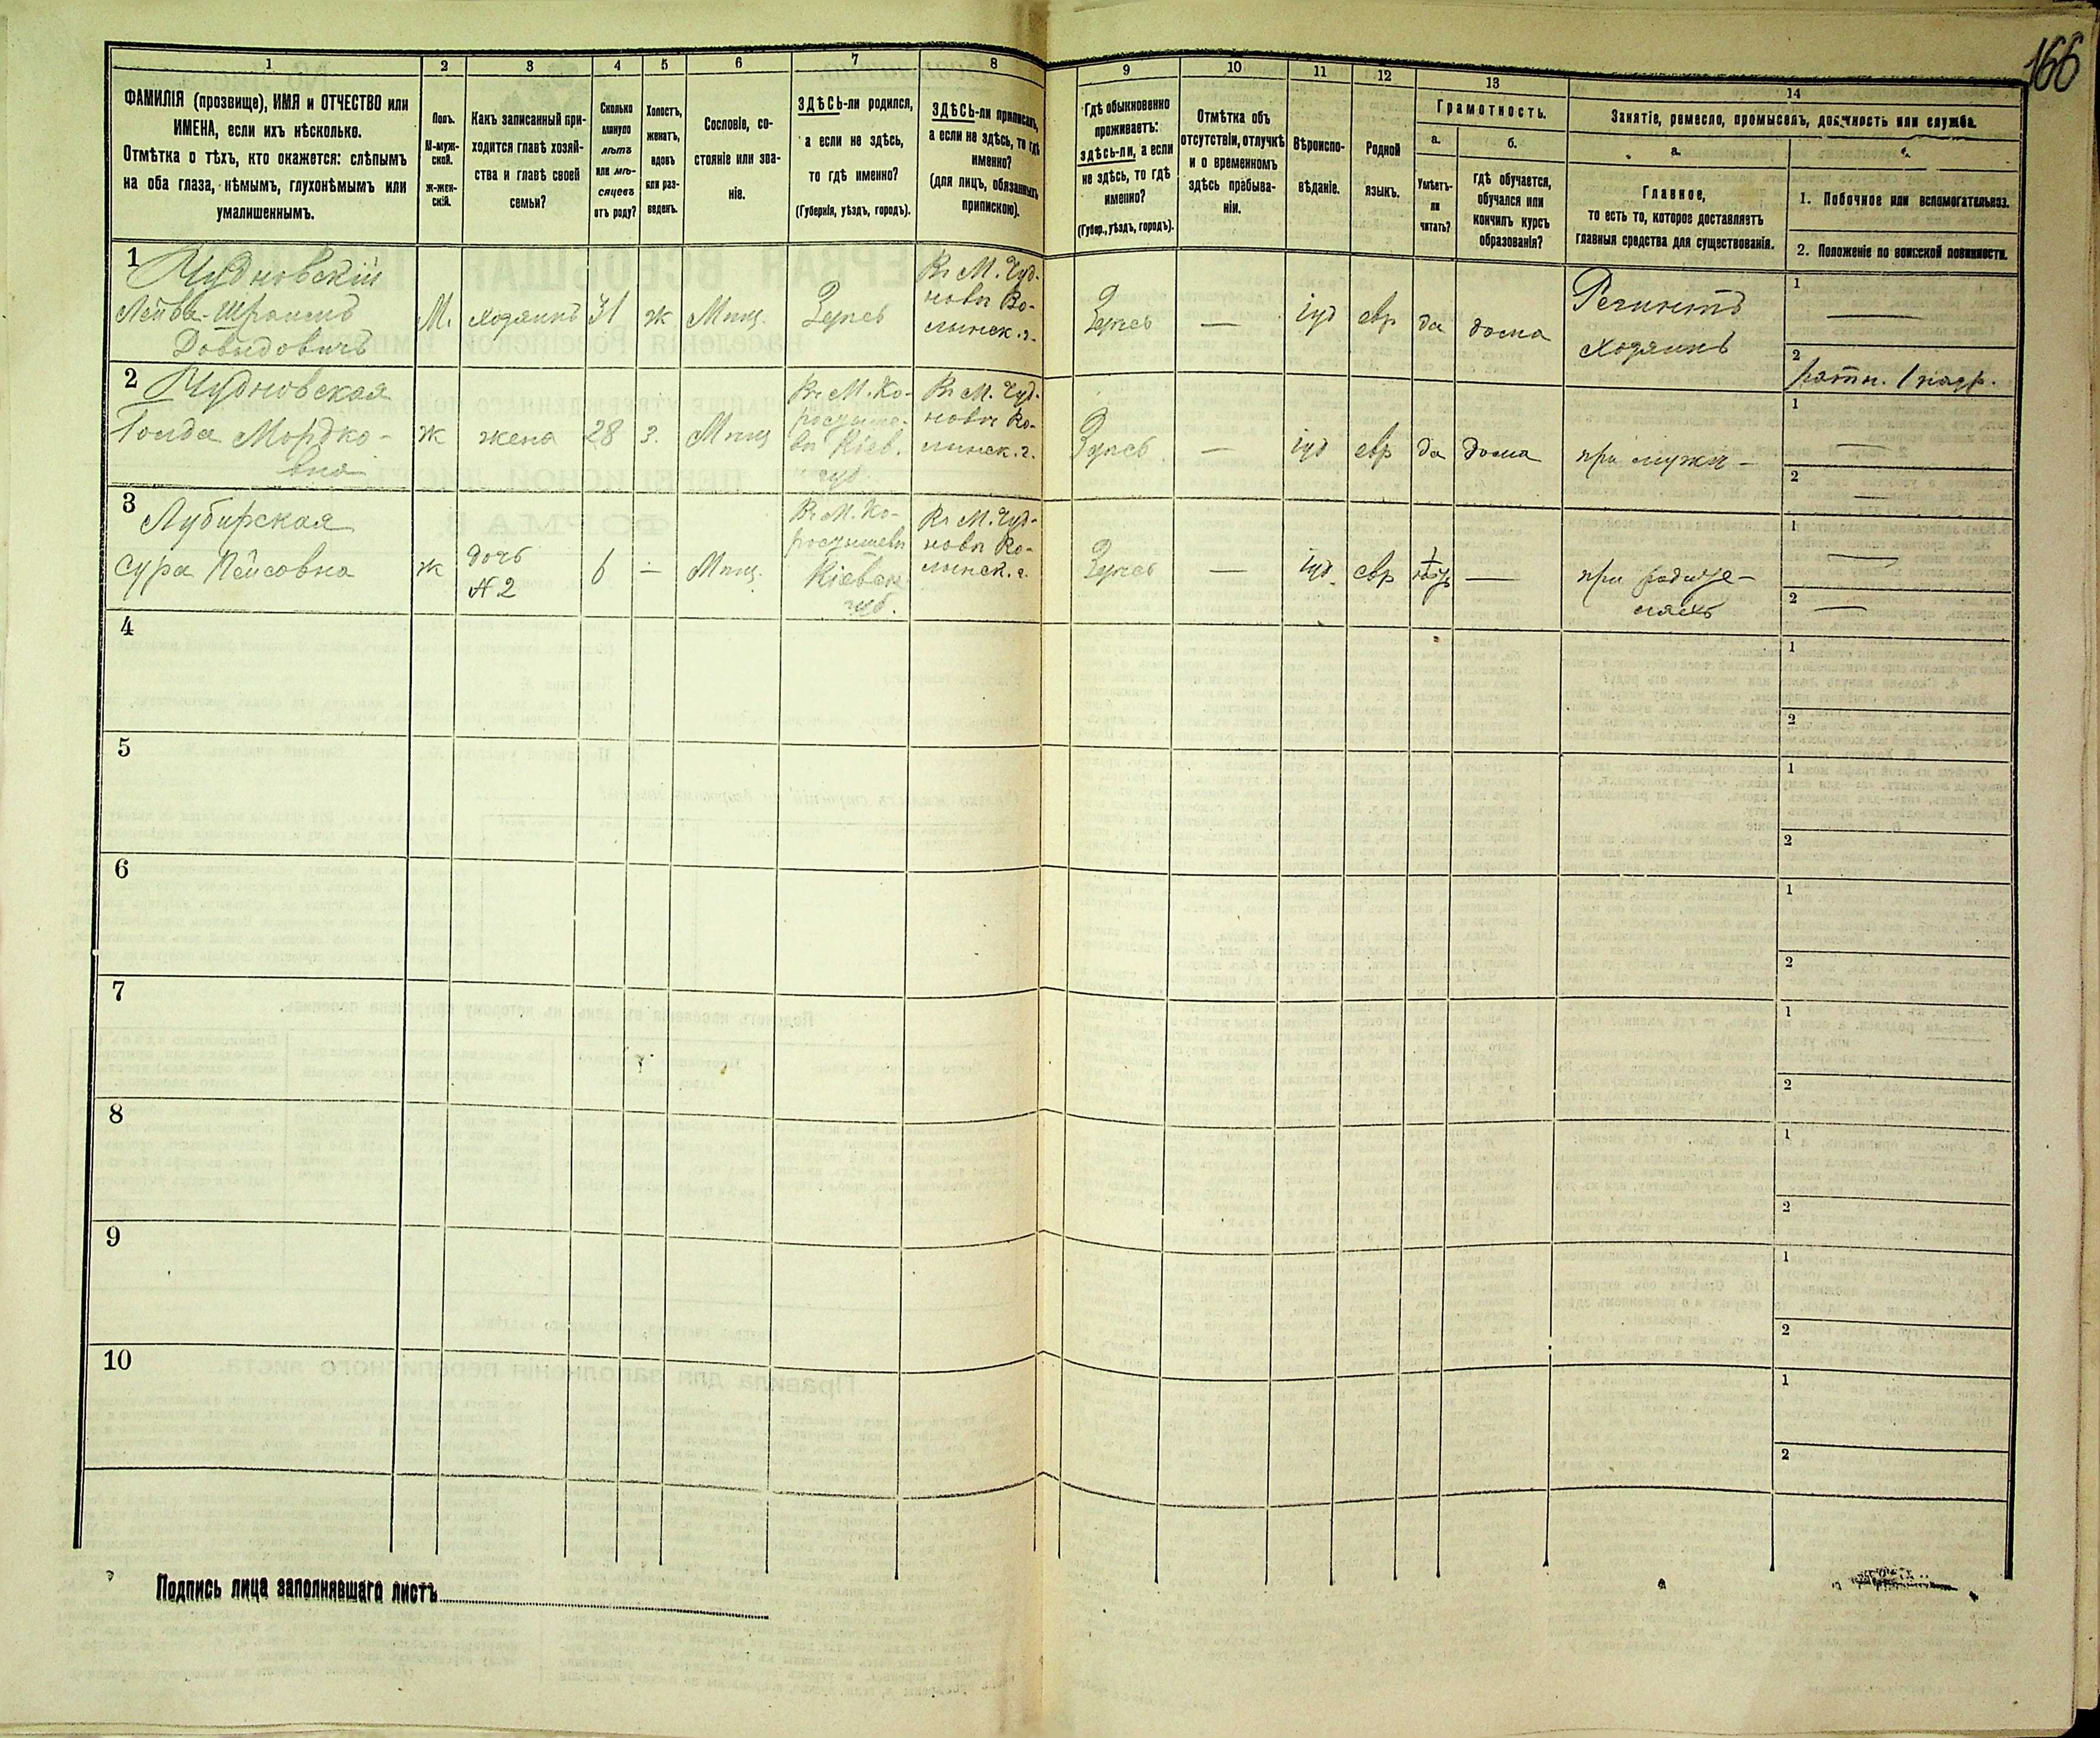 166
1 2 3 4 5 6 7 8 9 10 11 12 13 14
ФАМИЛІЯ (прозвище), ИМЯ и ОТЧЕСТВО или
ИМЕНА, если ихъ нѣсколько.
Отмѣтка о тѣхъ, кто окажется: слѣпымъ
на оба глаза, нѣмымъ, глухонѣмымъ или
умалишеннымъ.
Полъ.
М-муж-
ской.
ж-жен-
скій.
Какъ записанный при-
ходится главѣ хозяй-
ства и главѣ своей
семьи?
Сколько
минуло
лѣтъ
или мѣ-
сяцевъ
отъ роду?
Холостъ,
женатъ,
вдовъ
или раз-
веденъ.
Сословіе, со-
стояніе или зва-
ніе.
ЗДѢСЬ-ли родился,
а если не здѣсь,
то гдѣ именно?
(Губернія, уѣздъ, городъ).
ЗДѢСЬ-ли приписанъ,
а если не здѣсь, то гдѣ
именно?
(для лицъ, обязанныхъ
припискою).
Гдѣ обыкновенно
проживаетъ:
здѣсь-ли, а если
не здѣсь, то гдѣ
именно?
(Губер., уѣздъ, городъ).
Отмѣтка объ
отсутствіи, отлучкѣ
и о временномъ
здѣсь пребыва-
ніи.
Вѣроиспо-
вѣданіе.
Родной
языкъ.
Грамотность.
а.
Умѣетъ-
ли
читать?
б.
гдѣ обучается,
обучался или
кончилъ курсъ
образованія?
Занятіе, ремесло, промыселъ, должность или служба.
а.
Главное,
то есть то, которое доставляетъ
главныя средства для существованія.
1. Побочное или вспомогательное.
2. Положеніе по воинской повинности.
1
Чудновскій
Лейба-Шроимъ
Довидовичъ
М.
хозяинъ
31
ж
Мѣщ.
Здѣсь
Въ М. Чуд-
новѣ Во-
лынск. г.
Здѣсь
—
іуд
евр
да
дома
Регентъ
хозяинъ
1
—
2
ратн. 1 разр.
2
Чудновская
Голда Мордко-
вна
ж
жена
28
з.
Мѣщ
Въ М. Ко-
ростыше-
вѣ Кіев.
губ.
Въ М. Чуд-
новѣ Во-
лынск. г.
Здѣсь
—
іуд
евр
да
дома
при мужѣ —
1
—
2
—
3
Лубирская
Сура Пейсовна
ж
дочь
№ 2
6
—
Мѣщ.
Въ М. Ко-
ростышевѣ
Кіевск.
губ.
Въ М. Чуд-
новѣ Во-
лынск. г.
Здѣсь
—
іуд
евр
—
при родите-
ляхъ
1
—
2
—
4
1
2
5
1
2
6
1
2
7
1
2
8
1
2
9
1
2
10
1
2
Подпись лица заполнявшаго листъ